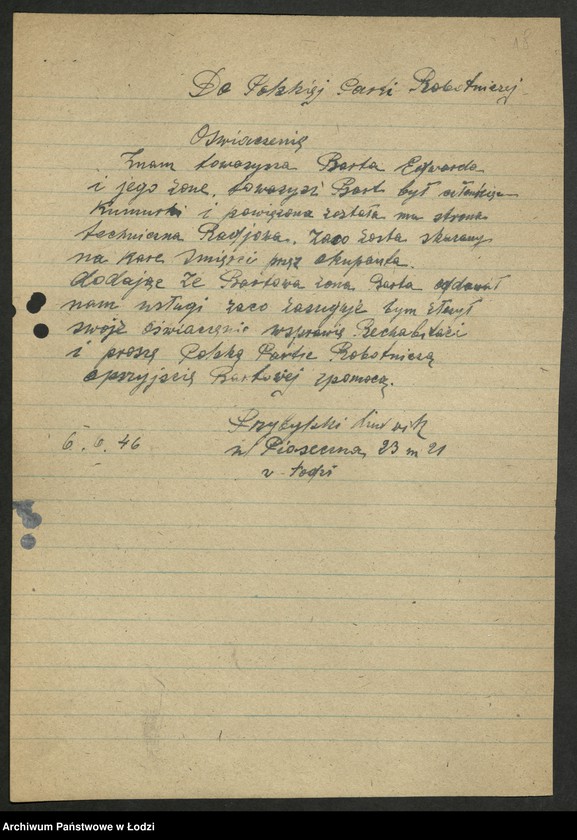 18
Do Polskiej Parti Robotniczej
Oswiaczenię
Znam towazysza Barta Edwarda
i jego żone. towazysz Bart był członkiem
Kumurki i powiężona została mu strona
techniczna Radjowa. zaco został skazany
na kare śmięrci przęz okupanta.
dodając że Bartowa żona Barta oddawał
nam usługi zaco zasuguje bym złożył
swojż oświaczęnie wsprawię Rechabitazi
i proszę Polską Partie Robotniczą
oprzyjscię Bartowej spomocą.
Przybylski Ludwik
6. 6. 46
ul Piaseczna 23 m 21
w Łodzi
Archiwum Państwowe w Łodzi